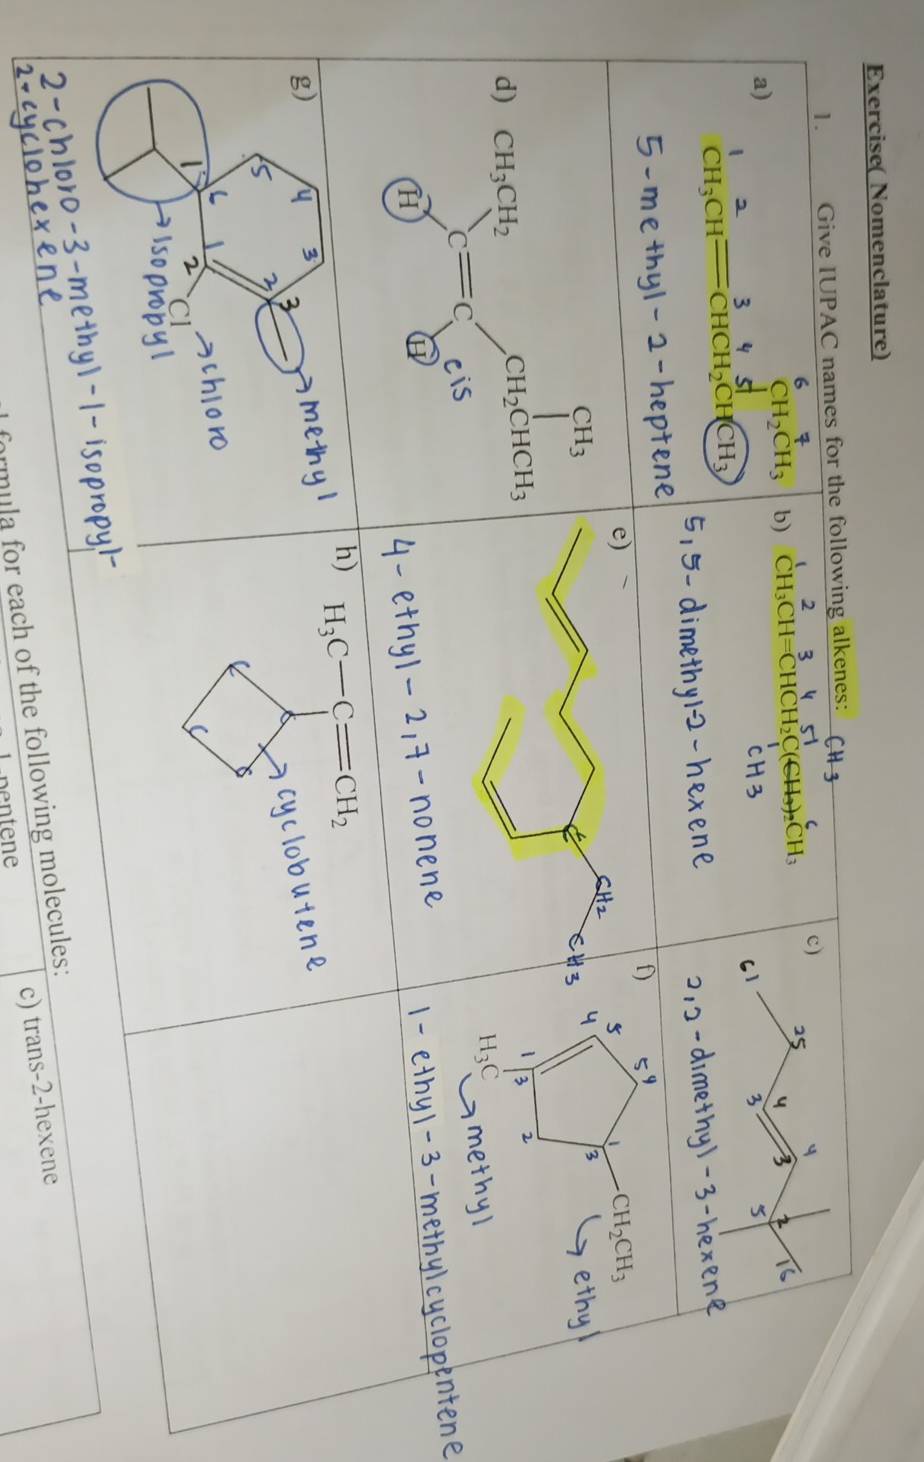 Exercise( Nomenclature)
1. Give IUPAC names for the following alkenes:
a)
6 7
CH₂CH₃
1 2 3 4 5
CH₃CH=CHCH₂CHCH₃
5-methyl-2-heptene
b)
CH3
1 2 3 4 5 6
CH3CH=CHCH2C(CH3)2CH3
CH3
5,5-dimethyl-2-hexene
c)
61 25 3 4 3 4 5 2 16
2,2-dimethyl-3-hexene
d)
CH₃
CH₃CH₂ CH₂CHCH₃
C=C
H H
cis
e)
CH2
CH3
4-ethyl-2,7-nonene
f)
4 5 54 1 3 2 1 3
CH₂CH₃
ethyl
H₃C
methyl
1-ethyl-3-methylcyclopentene
g)
4 3
5 2 3 methyl
6 1
1 2 Cl chloro
isopropyl
2-chloro-3-methyl-1-isopropyl-
2-cyclohexene
h)
H₃C—C=CH₂
C C
cyclobutene
formula for each of the following molecules:
pentene
c) trans-2-hexene